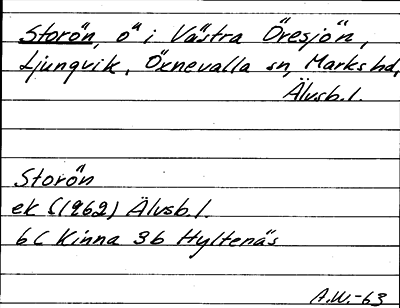 Storön, ö i Västra Öresjön,
Ljungvik, Öxnevalla sn, Marks hd,
Älvsb. l.
Storön
ek (1962) Älvsb. l.
6C Kinna 3b Hyltenäs
A.W.-63